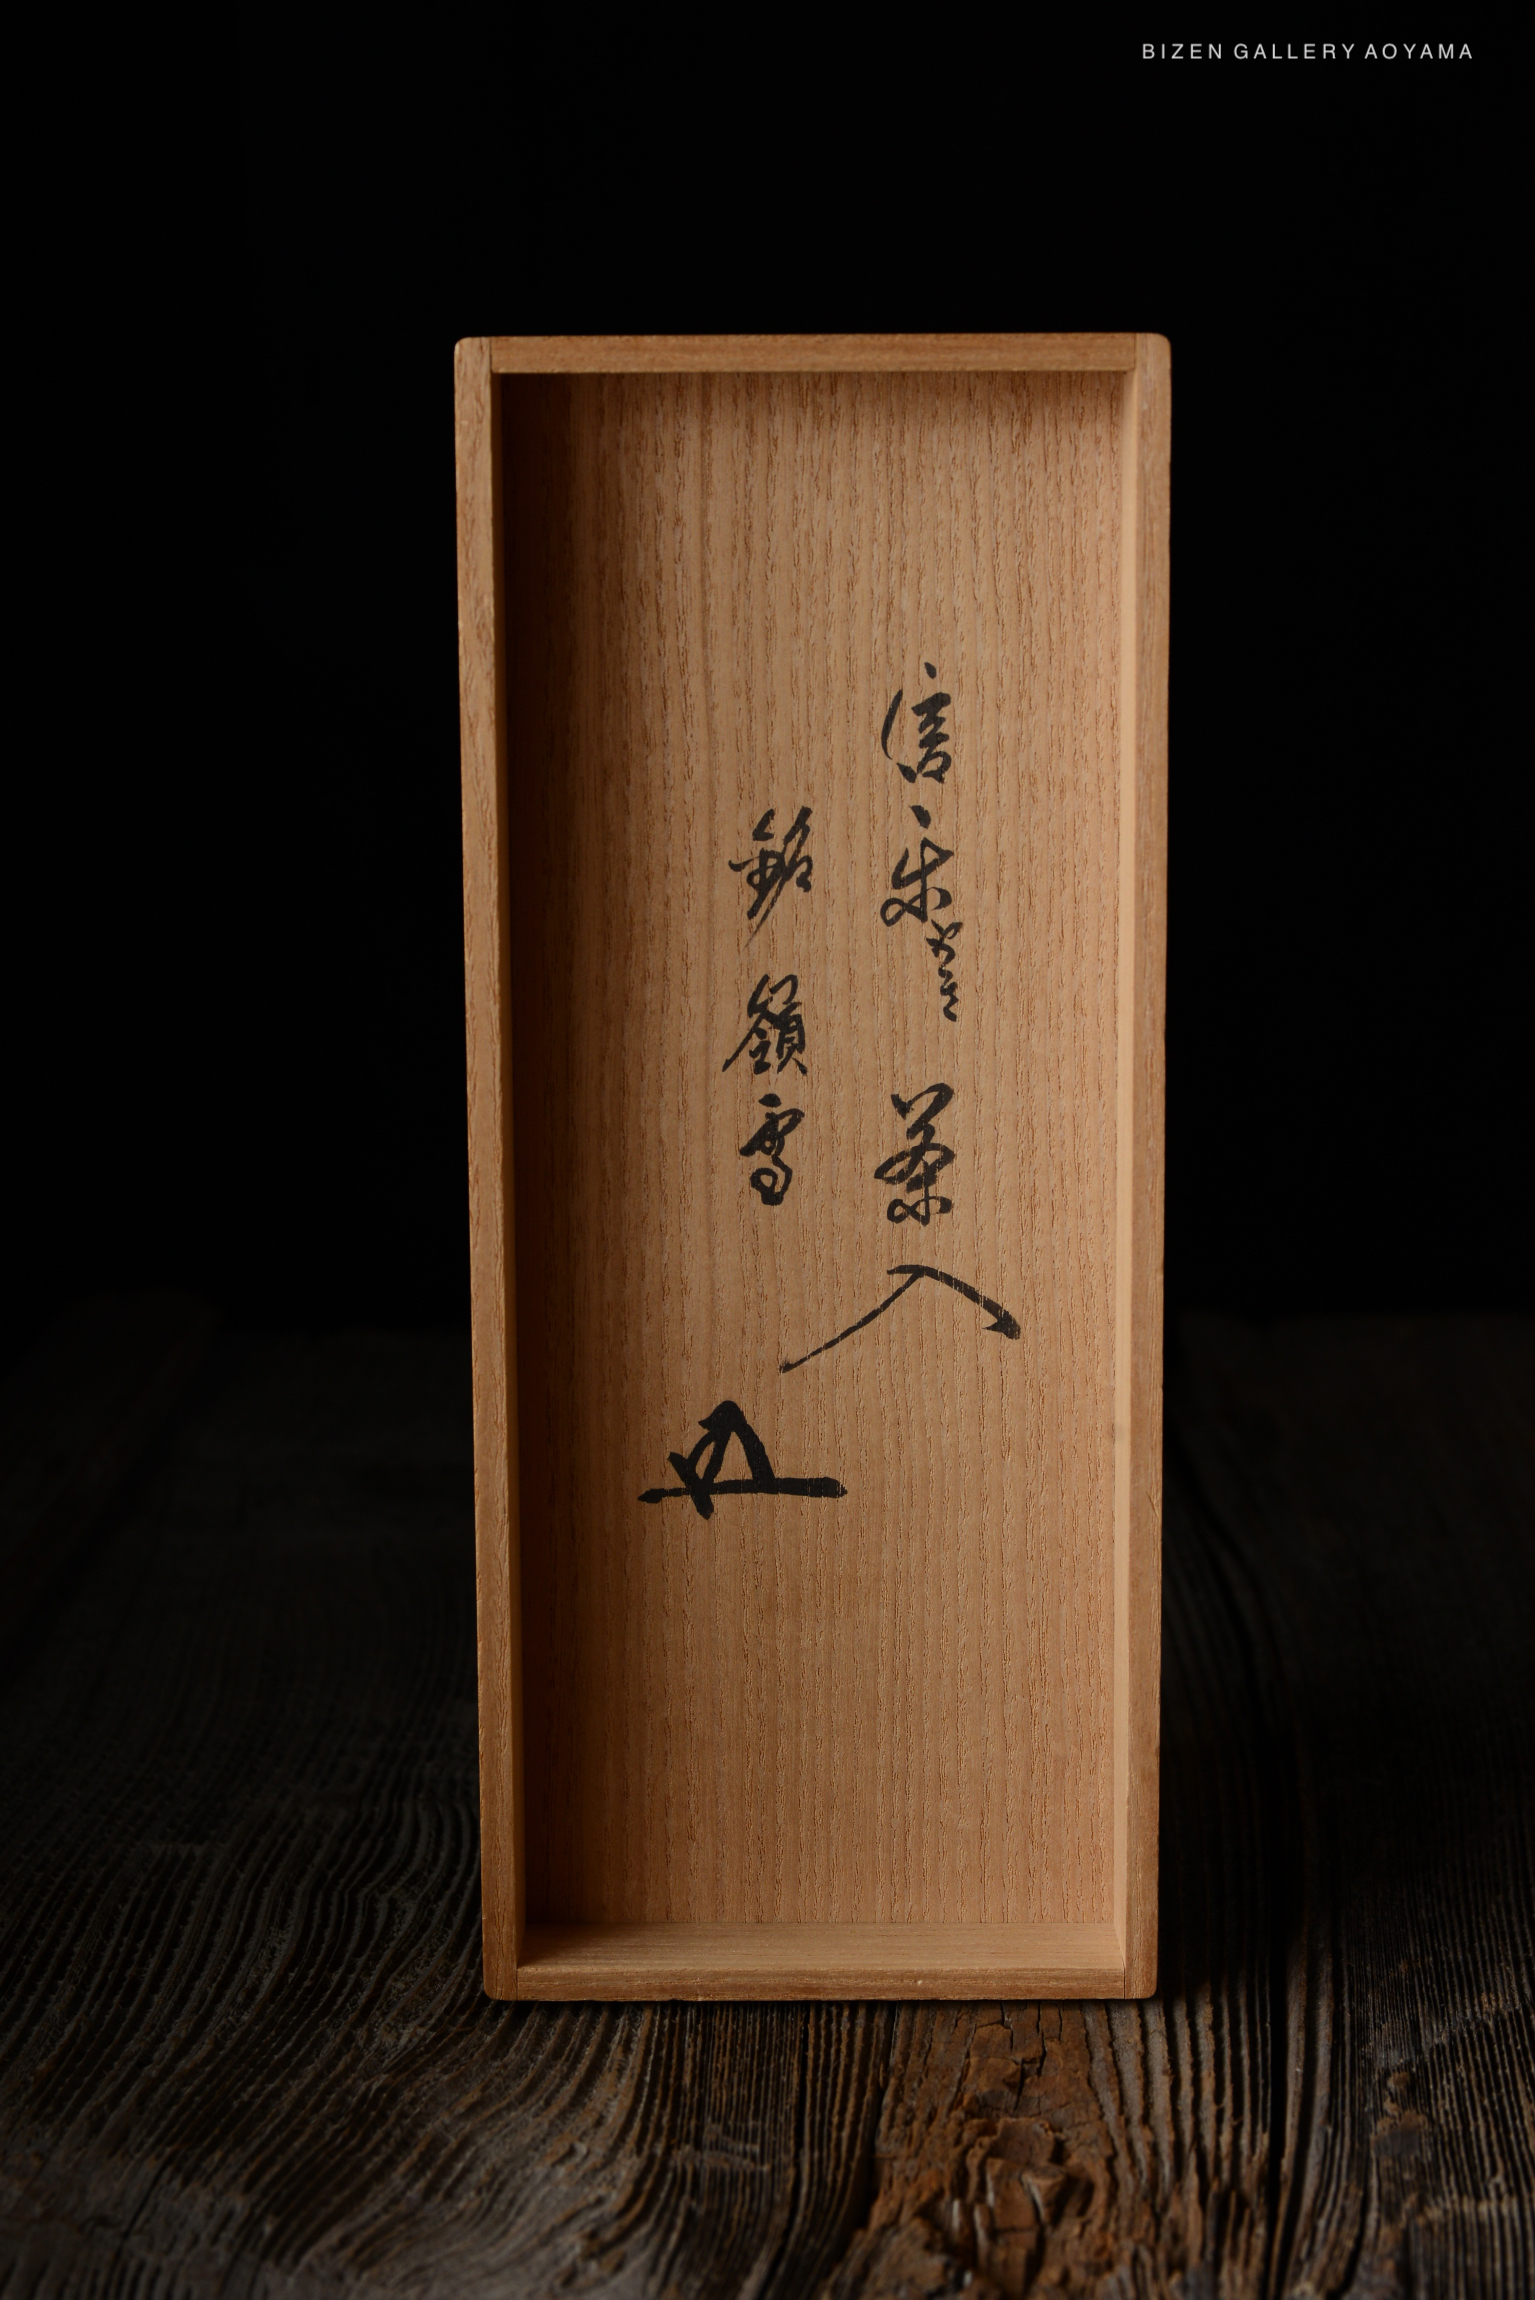 BIZEN GALLERY AOYAMA
信楽 茶入
銘 嶺雪